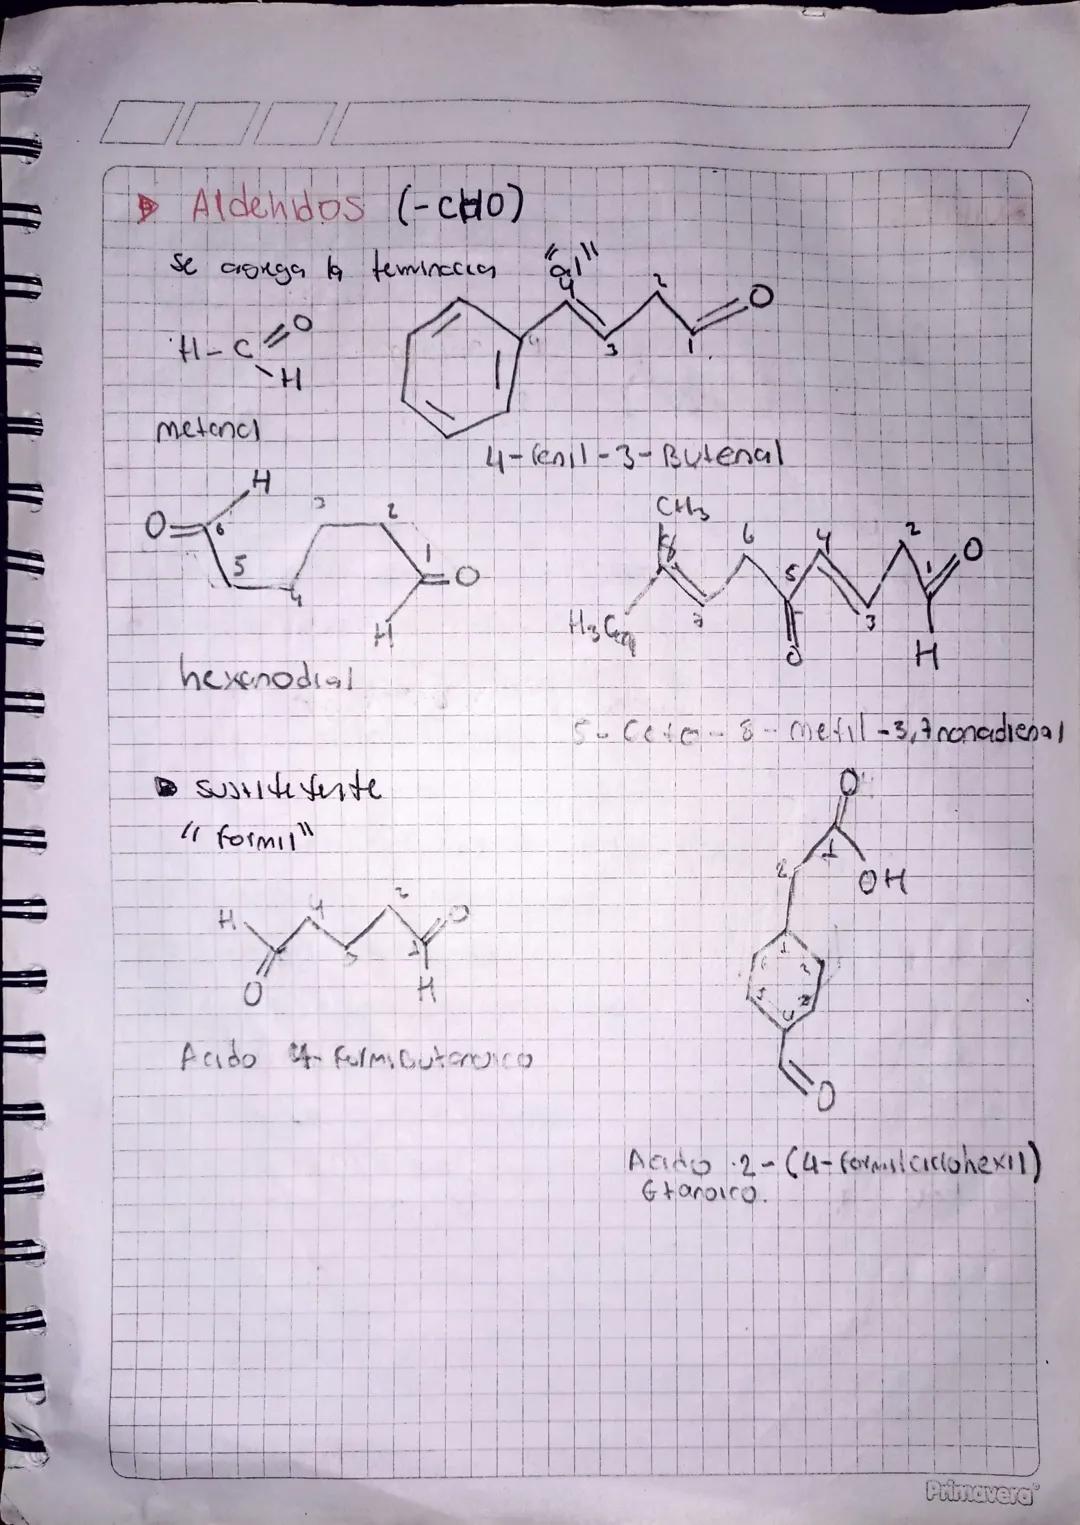 Aldehidos (-CHO)
Se agrega la
"al"
4 2 O
3 1
H-C O
H
metanal
4-fenil-3-Butenal
H
O 6 3 2
5 1 O
4
H
hexanodial
CH3
8 6 4 2 O
5 1
H3C 9 7 3
O H
5-Ceto-8-metil-3,7nonadienal
"formil"
H 4 2 O
3 1
O H
Acido 4-FormilButanoico
O
2 1
OH
1
4
O
Acido 2-(4-formilciclohexil)
Etanoico.
Primavera